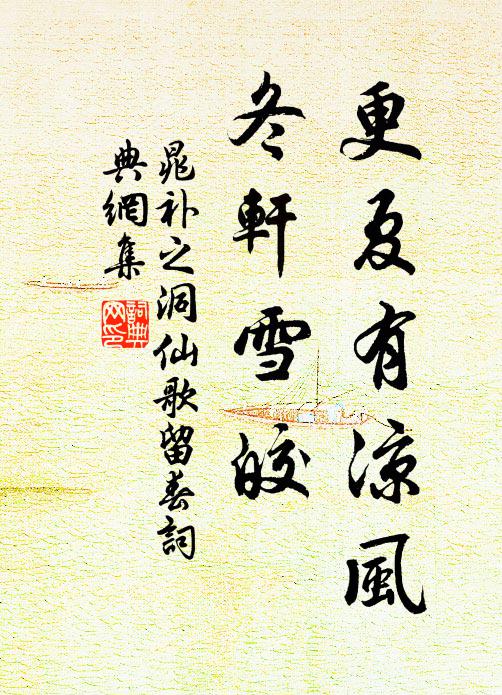 更夏有涼風
冬軒雪皎
晁补之洞仙歌留春詞
典網集
詞典
网印